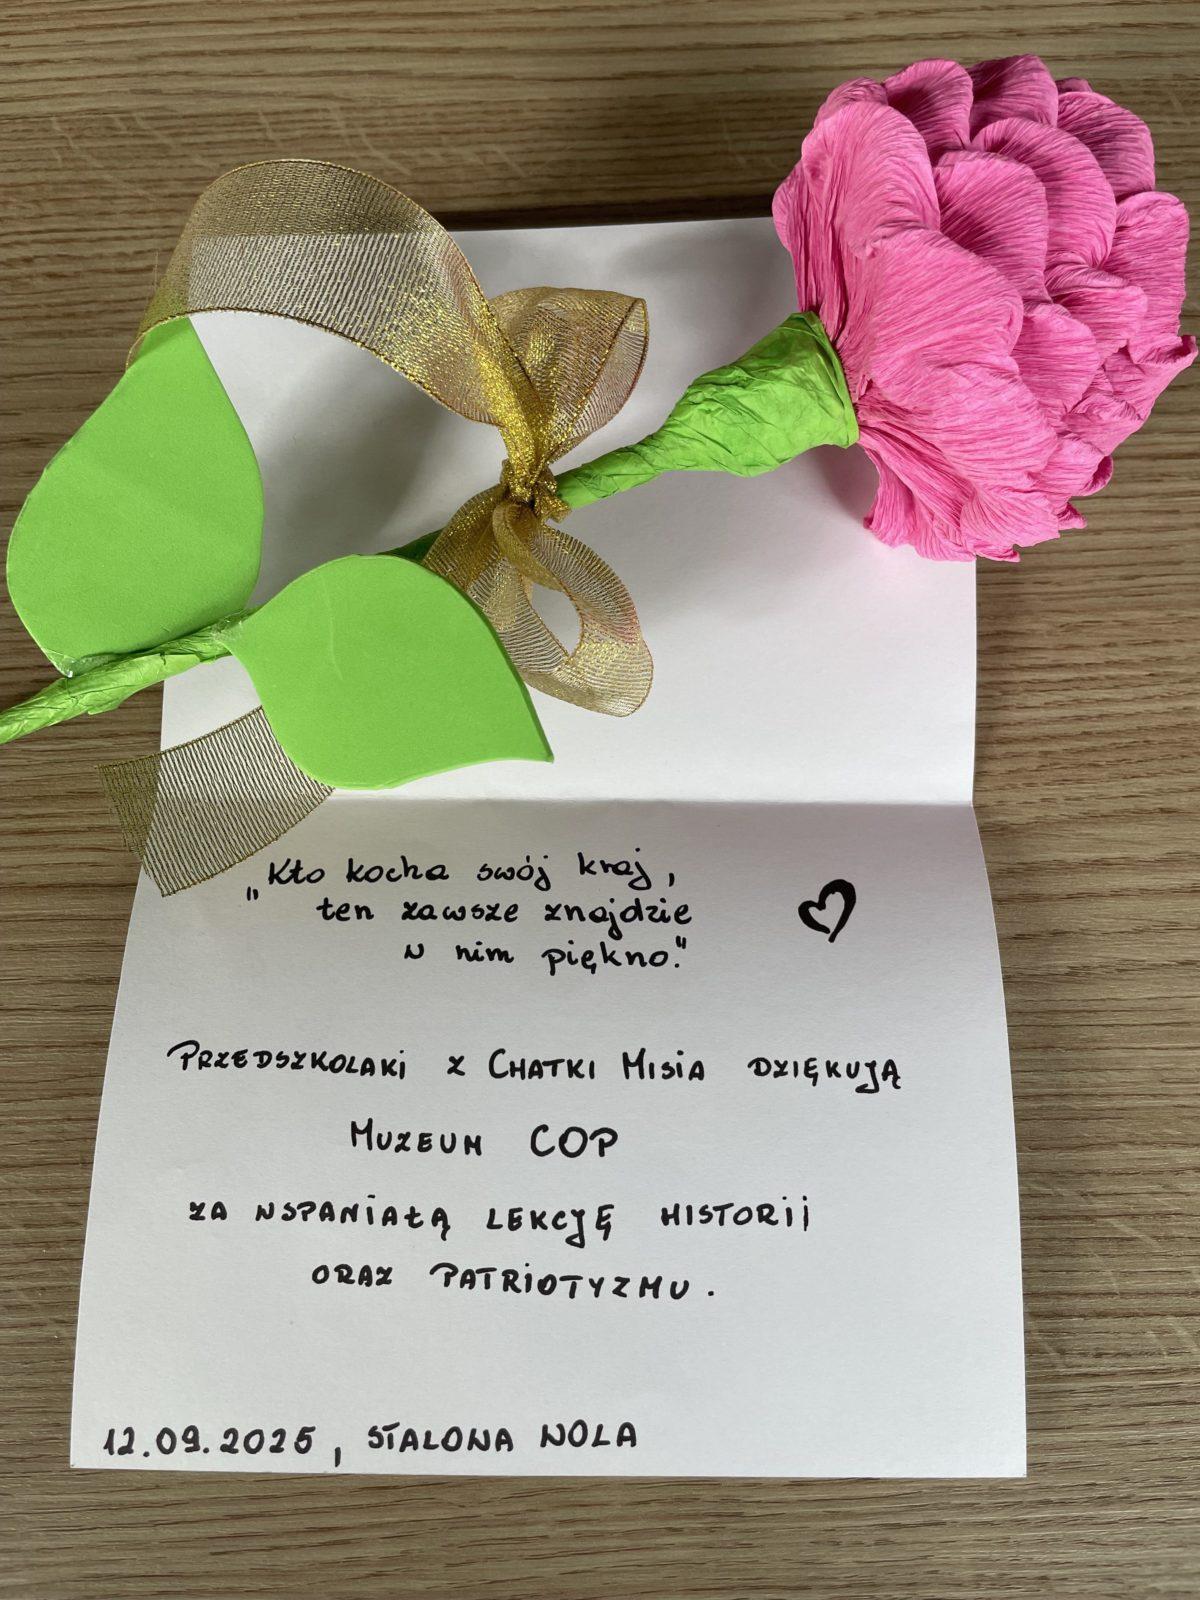 „Kto kocha swój kraj,
ten zawsze znajdzie
w nim piękno."
PRZEDSZKOLAKI Z CHATKI MISIA DZIĘKUJĄ
MUZEUM COP
ZA WSPANIAŁĄ LEKCJĘ HISTORII
ORAZ PATRIOTYZMU.
12.09.2025, STALOWA WOLA